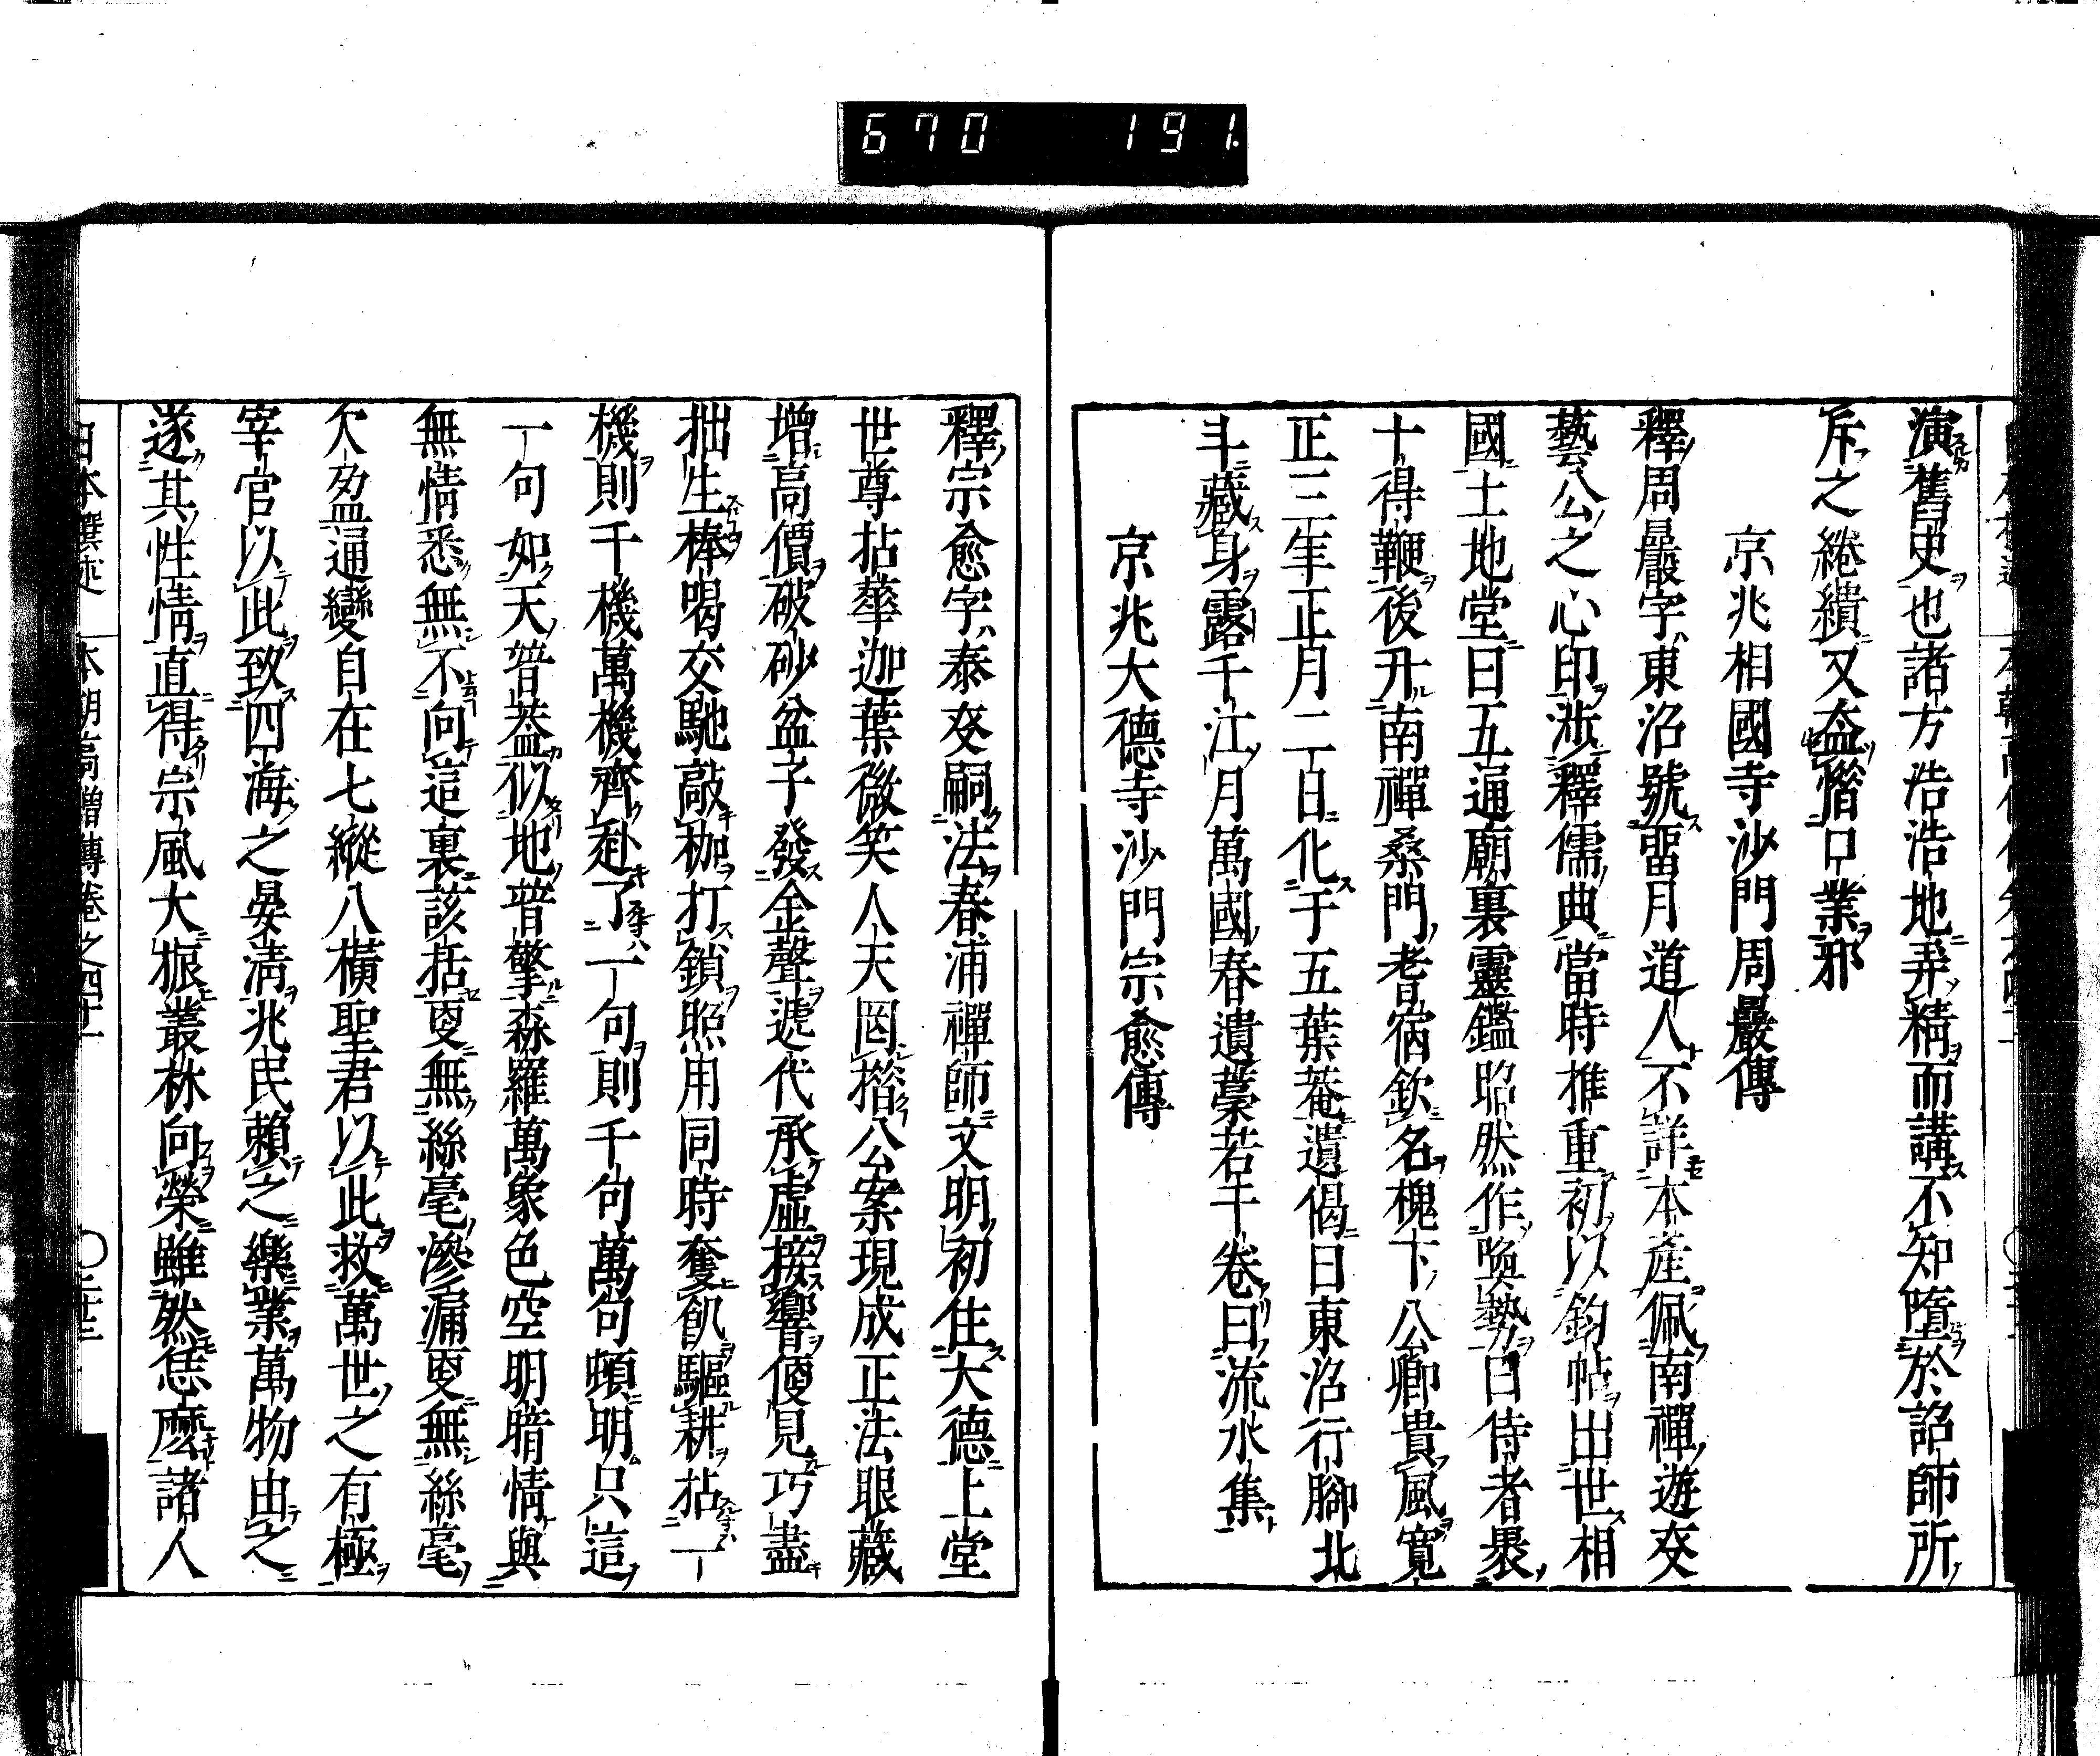 670 191.
演舊史也諸方浩浩地弄精而講不知墮於詔師所
斥之綣繢又益僭口業邪
京兆相國寺沙門周嚴傳
釋周嚴字東沼號畱月道人不詳本產佩南禪遊叟
藝公之心印涉釋儒典當時推重初以鈞帖出世相
國土地堂曰五通廟裏靈鑑昭然作喚勢曰侍者㬥
十得鞭後升南禪桑門耆宿欽名槐下公卿貴風寬
正三年正月二日化于五葉菴遺偈曰東沼行腳北
斗藏身露千江月萬國春遺藁若干卷曰流水集
京兆大德寺沙門宗愈傳
釋宗愈字泰叟嗣法春浦禪師文明初住大德上堂
世尊拈華迦葉微笑人天罔措公案現成正法眼藏
增高價破砂盆子發金聲遞代承虛接響傻見巧盡
拙生棒喝交馳敲枷打鎖照用同時奪飢驅耕拈一
機則千機萬機齊赴了一句則千句萬句頓明只這
一句如天普葢似地普擎森羅萬象色空明暗情與
無情悉無不向這裏該括更無絲毫滲漏更無絲毫
欠盈通變自在七縱八橫聖君以此救萬世之有極
宰官以此致四海之晏淸兆民賴之樂業萬物由之
遂其性情直得宗風大振叢林向榮雖然恁麼諸人
日本撰述 本朝高僧傳卷之四十一